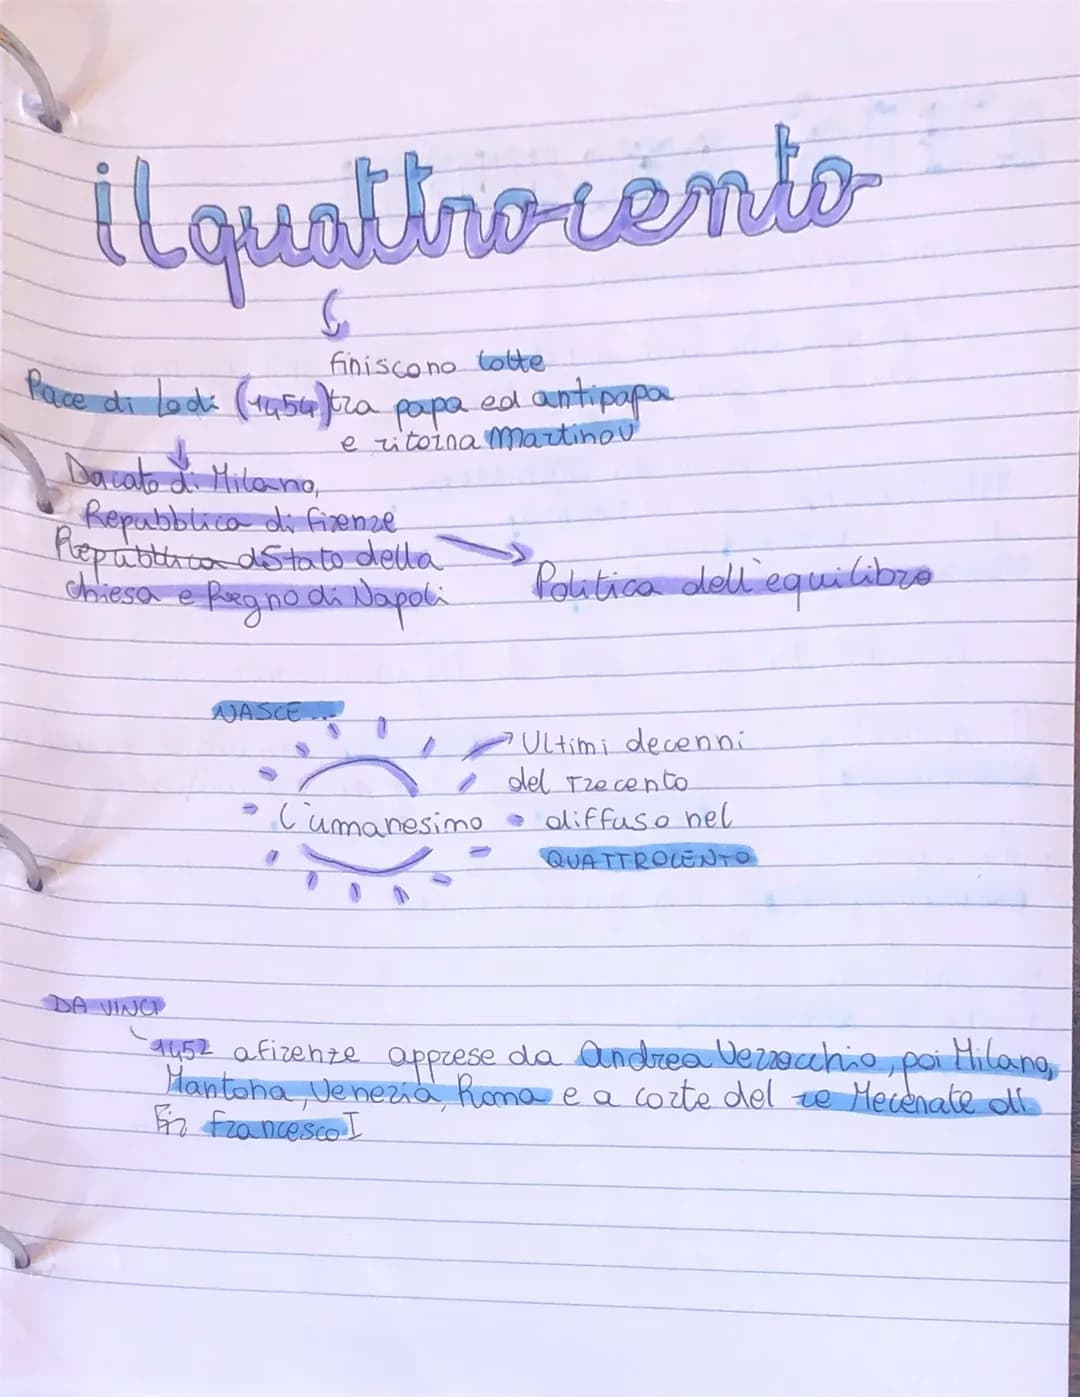 il quattrocento
finiscono lotte
Pace di Lodi (1454) tra papa ed antipapa
e ritorna Martino V
Dacato di Milano,
Repubblica di firenze
Repubblica di Stato della
chiesa e Regno di Napoli
Politica dell'equilibro
NASCE...
Ultimi decenni
del Trecento
l'umanesimo
diffuso nel
QUATTROCENTO
DA VINCI
1452 a firenze apprese da Andrea Verrocchio, poi Milano,
Mantoha, Venezia, Roma e a corte del re Mecenate di
Fir francesco I